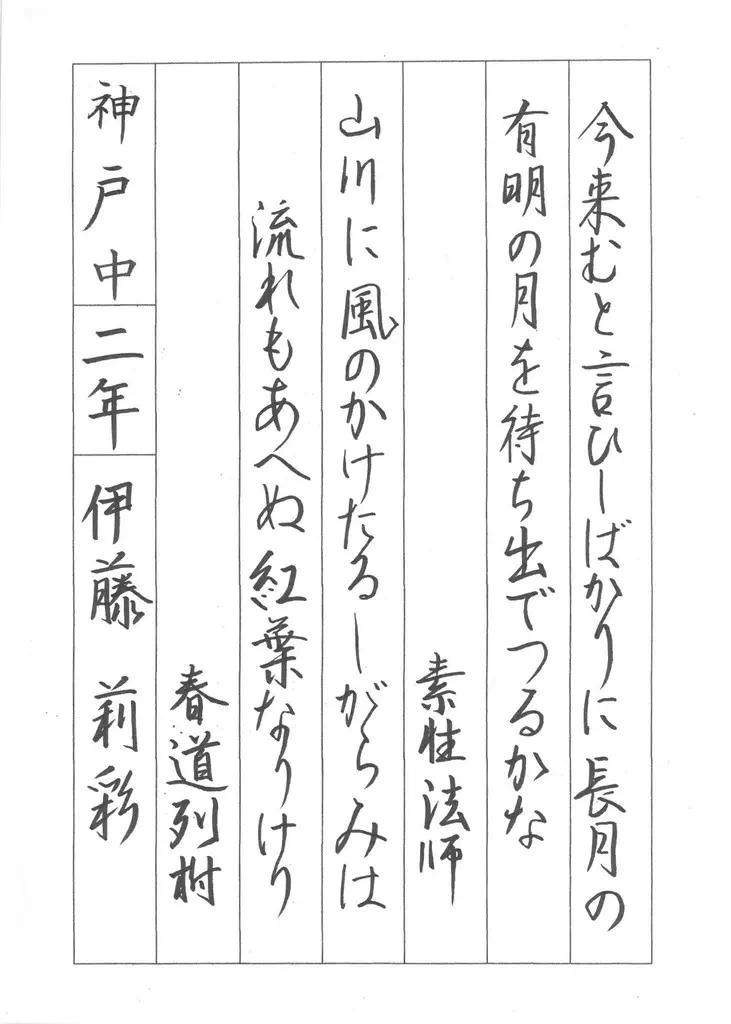 今来むと言ひしばかりに長月の
有明の月を待ち出でつるかな
素性法師
山川に風のかけたるしがらみは
流れもあへぬ紅葉なりけり
春道列樹
神戸中二年伊藤莉彩